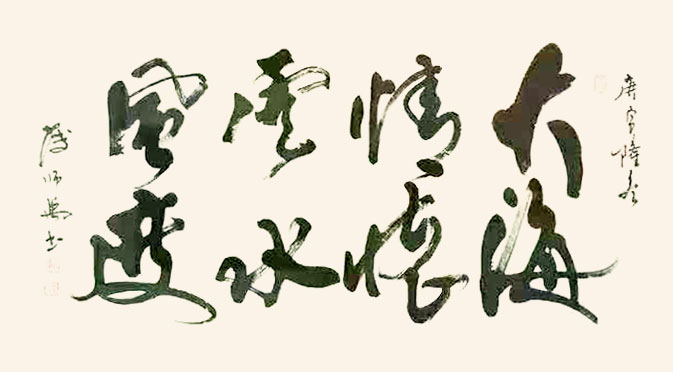 庚寅隆冬
大海
情怀
云水
风度